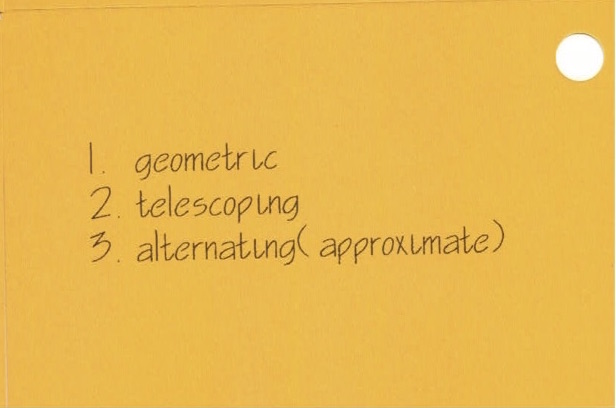 1. geometric
2. telescoping
3. alternating( approximate)